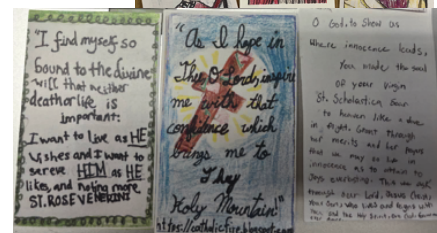 "I find myself so
bound to the divine
will that neither
death or life is
important:
I want to live as HE
wishes and I want to
serve HIM as HE
likes, and nothing more
ST. ROSE VENERINI
"As I hope in
Thee O Lord, inspire
me with that
confidence which
brings me to
Thy
Holy Mountain!"
https://catholicfire.blogspot.com
O God, to show us
where innocence leads,
You made the soul
of your virgin
St. Scholastica soar
to heaven like a dove
in flight. Grant through
her merits and her prayers
that we may so live in
innocence as to attain to
joys everlasting. This we ask
through our Lord, Jesus Christ,
Your Son, who lives and reigns with